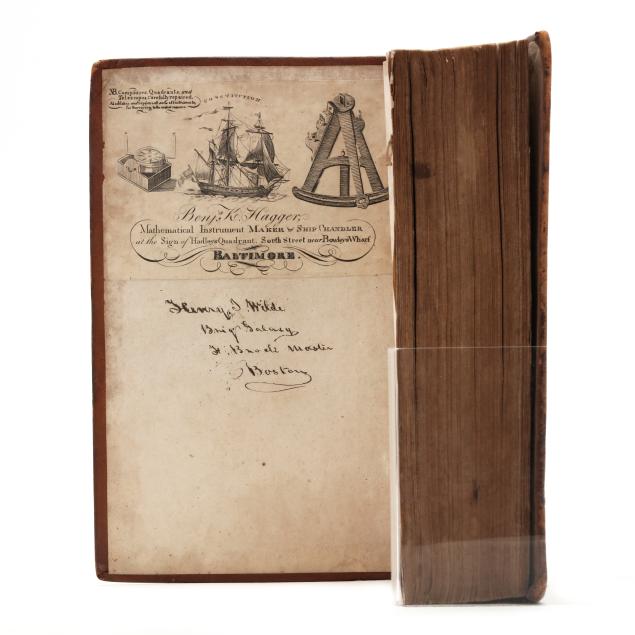 NB. Compasses, Quadrants, and
Telescopes, Carefully repaired.
CONSTITUTION
Benj. K. Hagger,
Mathematical Instrument MAKER & SHIP CHANDLER
at the Sign of Hadleys Quadrant. South Street near Bowleys Wharf
BALTIMORE.
Henry J. Wilde
Brig Galaxy
Master
Boston